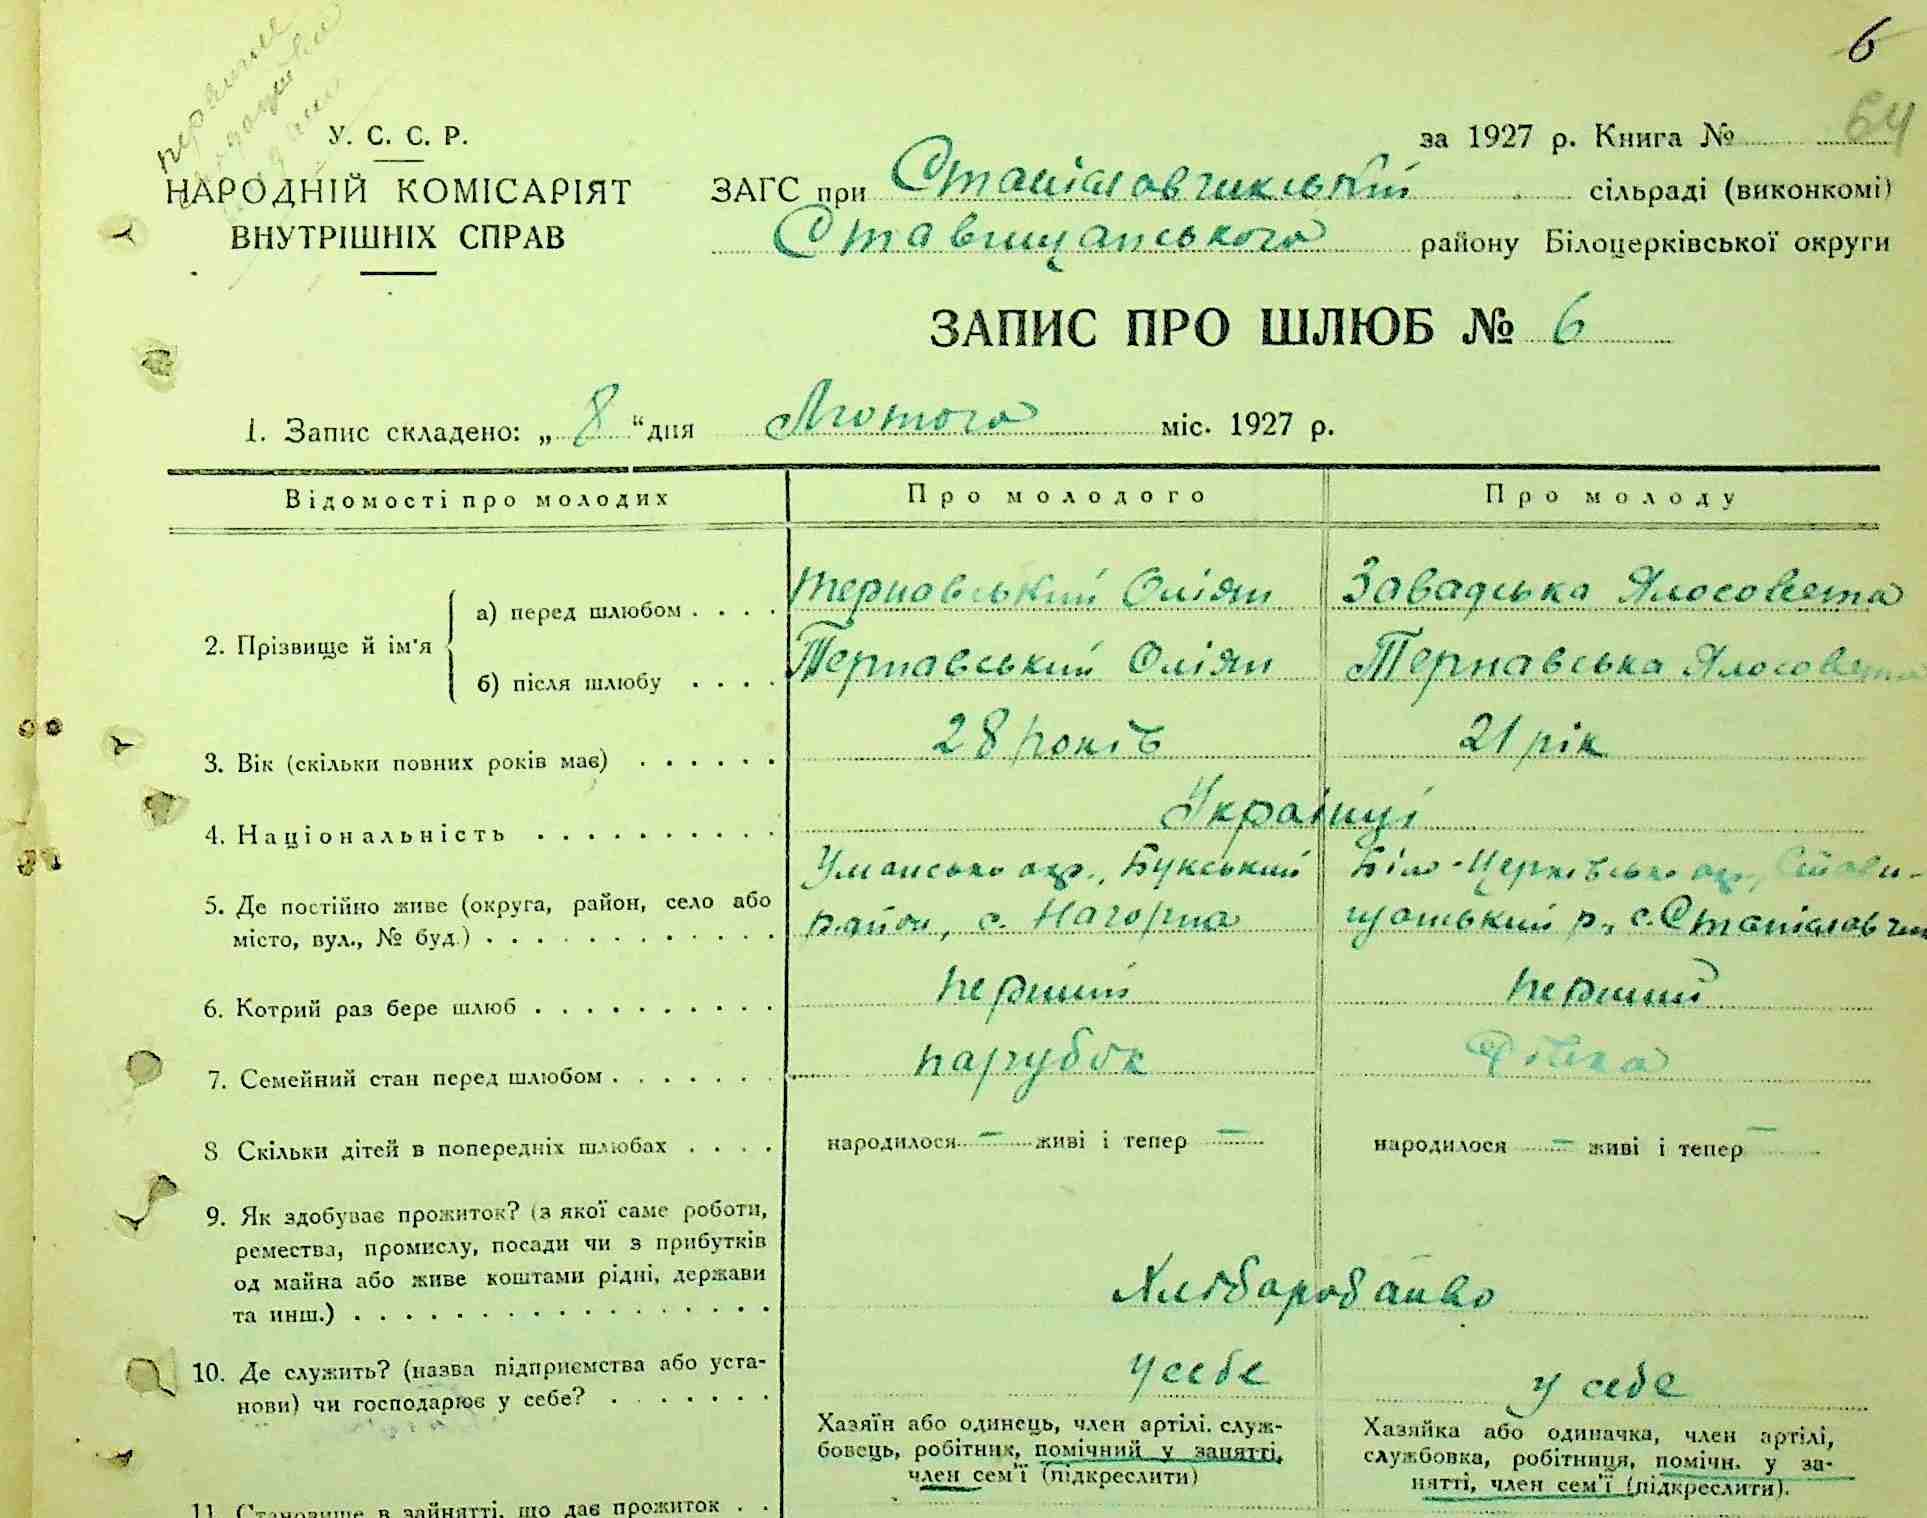 6
64
У. С. С. Р.
за 1927 р. Книга №
НАРОДНІЙ КОМІСАРІЯТ
ВНУТРІШНІХ СПРАВ
ЗАГС при Станіславчикській сільраді (виконкомі)
Ставищанського району Білоцерківської округи
ЗАПИС ПРО ШЛЮБ № 6
1. Запис складено: „ 8 “ дня Лютого міс. 1927 р.
Відомості про молодих Про молодого Про молоду
2. Прізвище й ім'я
а) перед шлюбом . . . . Терновський Оліян Завадська Ялосовета
б) після шлюбу . . . . Тернавський Оліян Тернавська Ялосовета
3. Вік (скільки повних років має) . . . . . . 28 років 21 рік
4. Національність . . . . . . . . . . Українці
5. Де постійно живе (округа, район, село або
місто, вул., № буд.) . . . . . . . . . . . .
Уманська окр., Букський
район, с. Нагорна
Біло-Церківська окр., Стави-
щанський р., с. Станіславчик
6. Котрий раз бере шлюб . . . . . . . . . . перший перший
7. Семейний стан перед шлюбом . . . . . . . парубок Дівка
8 Скільки дітей в попередніх шлюбах . . . . народилося — живі і тепер — народилося — живі і тепер —
9. Як здобуває прожиток? (з якої саме роботи,
ремества, промислу, посади чи з прибутків
од майна або живе коштами рідні, держави
та инш.) . . . . . . . . . . . . . . . . .
10. Де служить? (назва підприємства або уста-
нови) чи господарює у себе? . . . . . . . у себе у себе
Хазяїн або одинець, член артілі, служ-
бовець, робітник, помічний у занятті,
член сем'ї (підкреслити)
Хазяйка або одиначка, член артілі,
службовка, робітниця, помічн. у за-
нятті, член сем'ї (підкреслити).
11. Становище в зайнятті, що дає прожиток . .